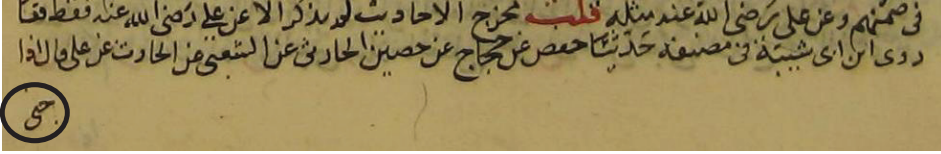 في ضمنهم وعن على رضى الله عنه مثله قلت مخرج الاحاديث لم يذكر الا عن على رضى الله عنه فقط فقد
روى ابن ابى شيبة في مصنفه حدثنا حفص عن حجاج عن حصين الحارثى عن الشعبي عن الحارث عن على قال اذا